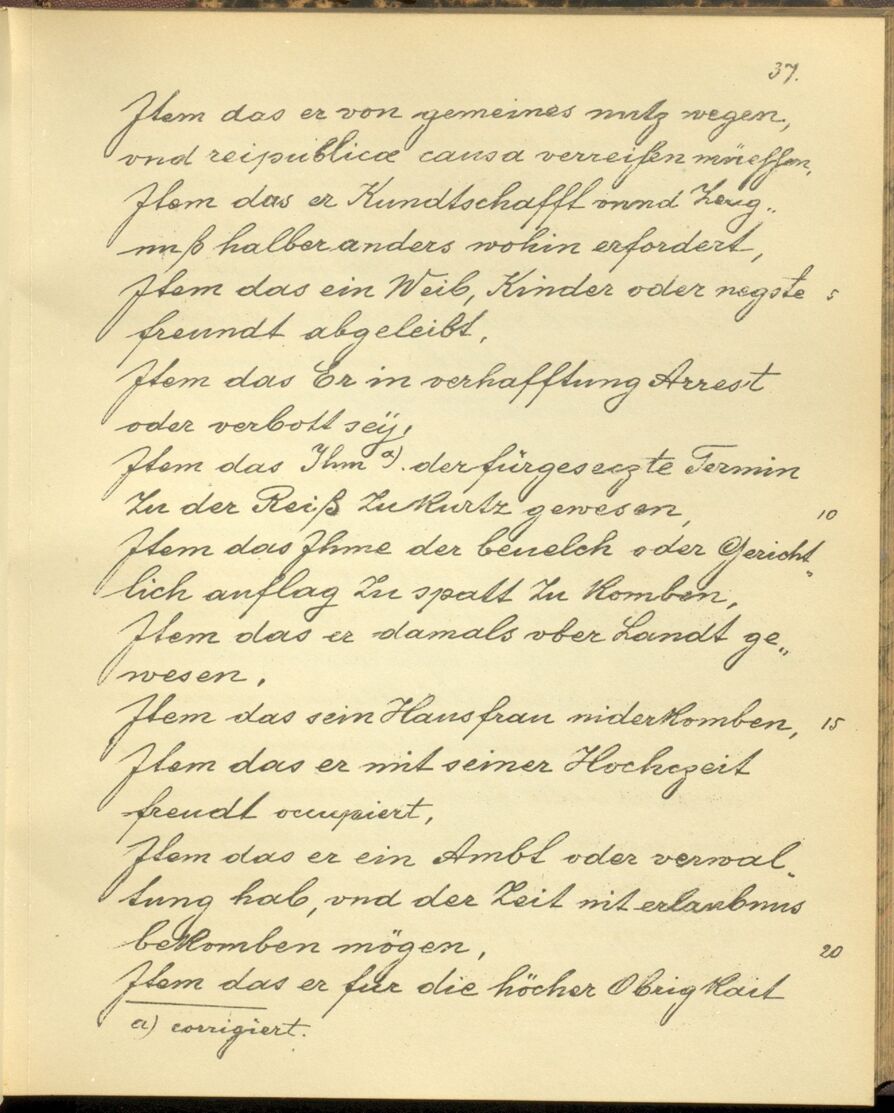 37.
Item das er von gemeines nutz wegen,
vnd reipublicæ causa verreißen müessen,
Item das er Kundtschafft vnnd Zeug„
nuß halber anders wohin erfordert,
Item das ein Weib, Kinder oder negste 5
freundt abgeleibt,
Item das Er in verhafftung Arrest
oder verbott seÿ,
Item das Ihm a). der fürgeseczte Termin
Zu der Reiß Zu Kurtz gewesen, 10
Item das Ihme der beuelch oder Gericht„
lich auflag Zu spatt Zu Komben,
Item das er damals vber Landt ge„
wesen,
Item das sein Hausfrau niderKomben, 15
Item das er mit seiner Hochczeit
freudt occupiert,
Item das er ein Ambt oder verwal„
tung hab, vnd der Zeit nit erlaubnus
beKomben mögen, 20
Item das er für die höcher ObrigKait
a) corrigiert.